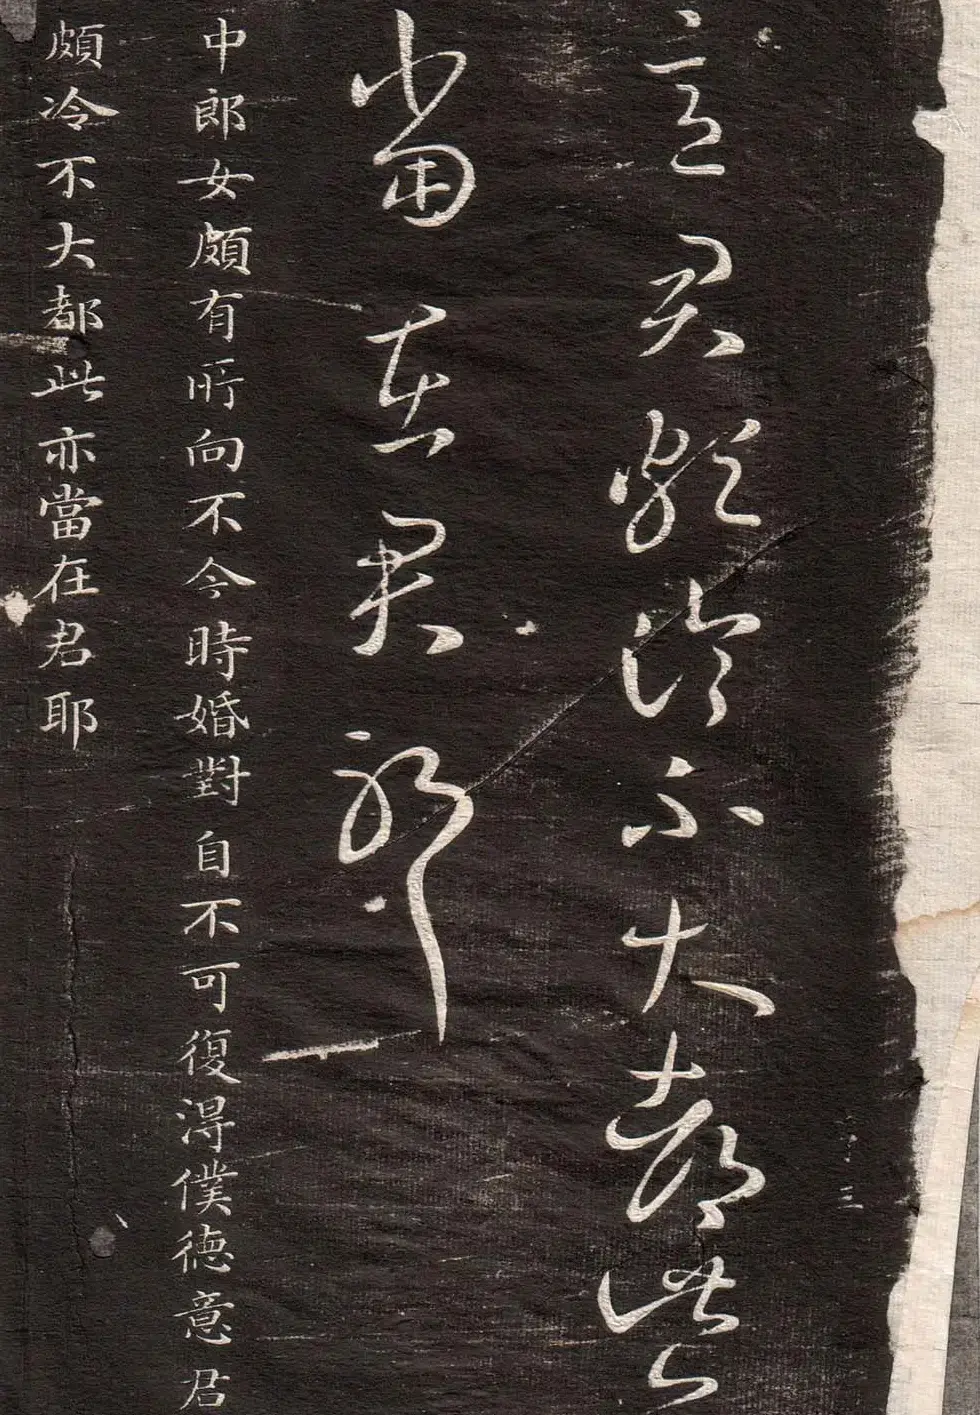 三
意君頗冷不大都此亦
當在君耶
中郎女頗有所向不今時婚對自不可復得僕徳意君
頗冷不大都此亦當在君耶